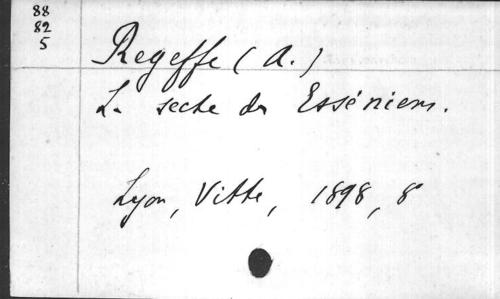 88
82
5
Regeffe (A.)
La secte des Esséniens.
Lyon, Vitte, 1898, 8°